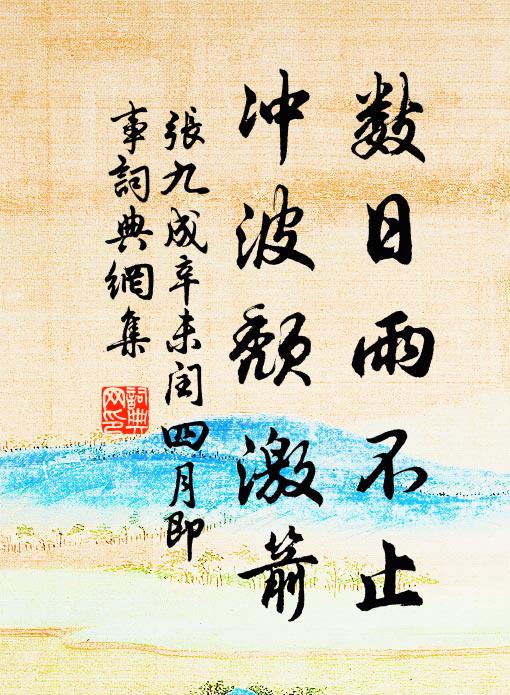 数日雨不止
冲波颓激箭
張九成辛未闰四月即
事詞典網集
詞典
网印